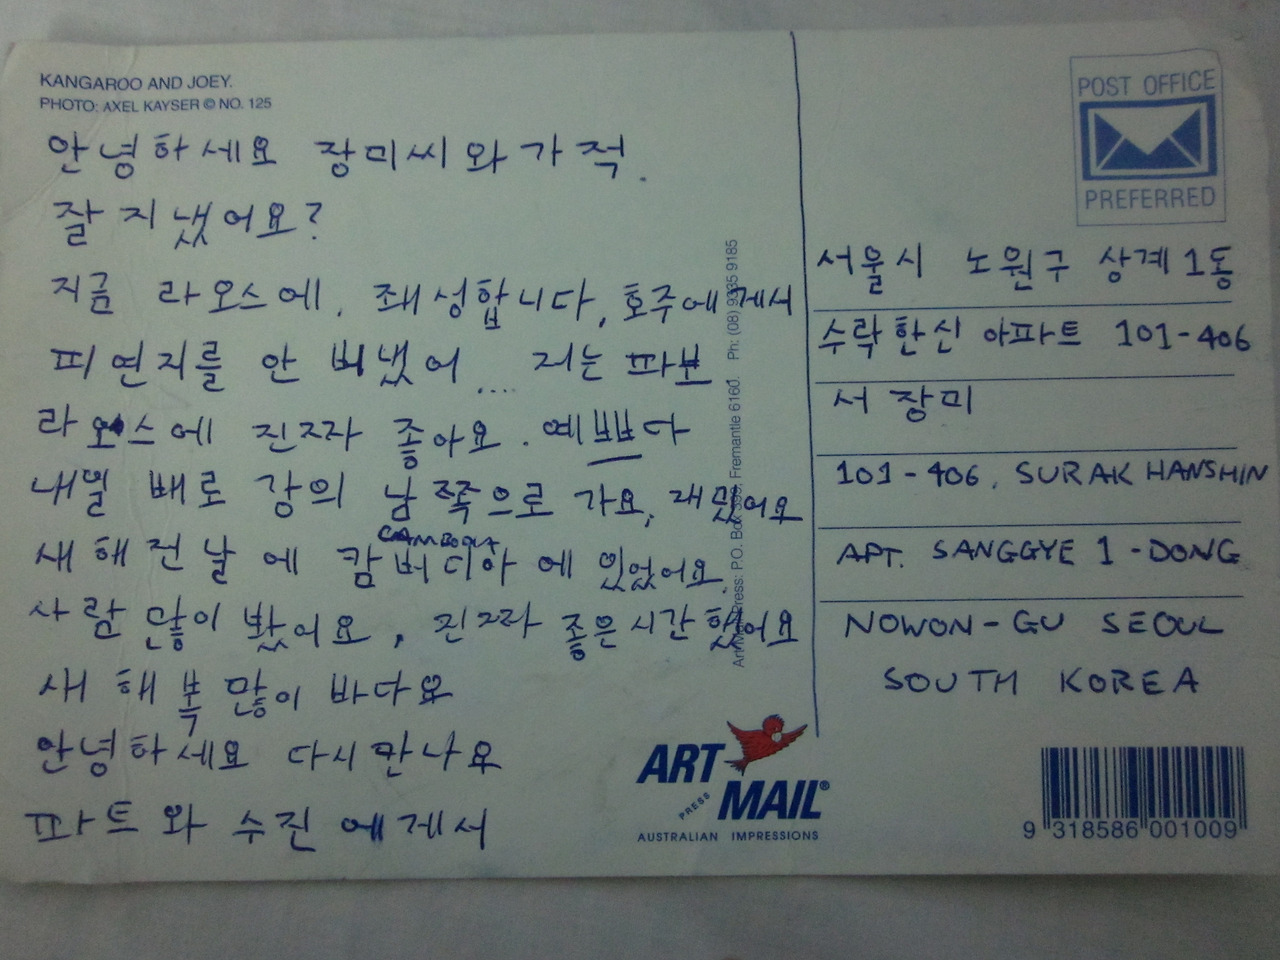 KANGAROO AND JOEY.
PHOTO: AXEL KAYSER © NO. 125
안녕하세요 장미씨와 가적.
잘 지냈어요?
지금 라오스에, 좨성합니다, 호주에게서
피연지를 안 버냈어 .... 저는 파보
라오스에 진짜 좋아요. 예쁘다
내일 배로 강의 남쪽으로 가요, 재밌어요
새해 전날에 캄버디아에 있었어요.
CAMBODIA
사람 많이 봤어요, 진짜 좋은 시간 했어요
새해 복 많이 바다요
안녕하세요 다시 만나요
파트와 수진에게서
Art Mail Press: P.O. Box 399, Fremantle 6160. Ph: (08) 9335 9185
POST OFFICE
PREFERRED
서울시 노원구 상계1동
수락한신 아파트 101-406
서장미
101-406, SURAK HANSHIN
APT. SANGGYE 1-DONG
NOWON-GU SEOUL
SOUTH KOREA
ART
PRESS
MAIL®
AUSTRALIAN IMPRESSIONS
9 318586 001009